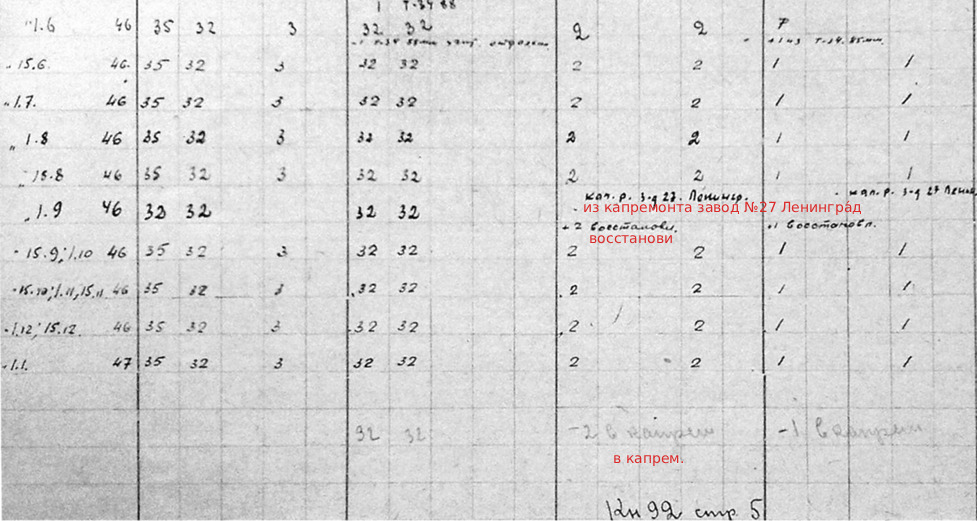 1 Т-34 88
"1.6 46 35 32 3 32 32 2 2
+1 из Т-34. 85мм.
„ 15.6. 46. 35 32 3 32 32 2 2 1 1
„ 1.7. 46 35 32 3 32 32 2 2 1 1
„ 1.8 46 35 32 3 32 32 2 2 1 1
„ 15.8 46 35 32 3 32 32 2 2 1 1
- кап.р. з-д 27. Ленингр. - кап.р. з-д 27
„ 1.9 46 32 32 32 32
из капремонта завод №27 Ленинград
+2 восстановл. +1 восстановл.
восстанови
" 15.9; 1.10 46 35 32 3 32 32 2 2 1 1
"15.10; 1.11, 15.11 46 35 32 3 32 32 2 2 1 1
"1.12; 15.12. 46 35 32 3 32 32 2 2 1 1
"1.1. 47 35 32 3 32 32 2 2 1 1
32 32 -2 в капрем -1 в капрем
в капрем.
Кн 92 стр 5